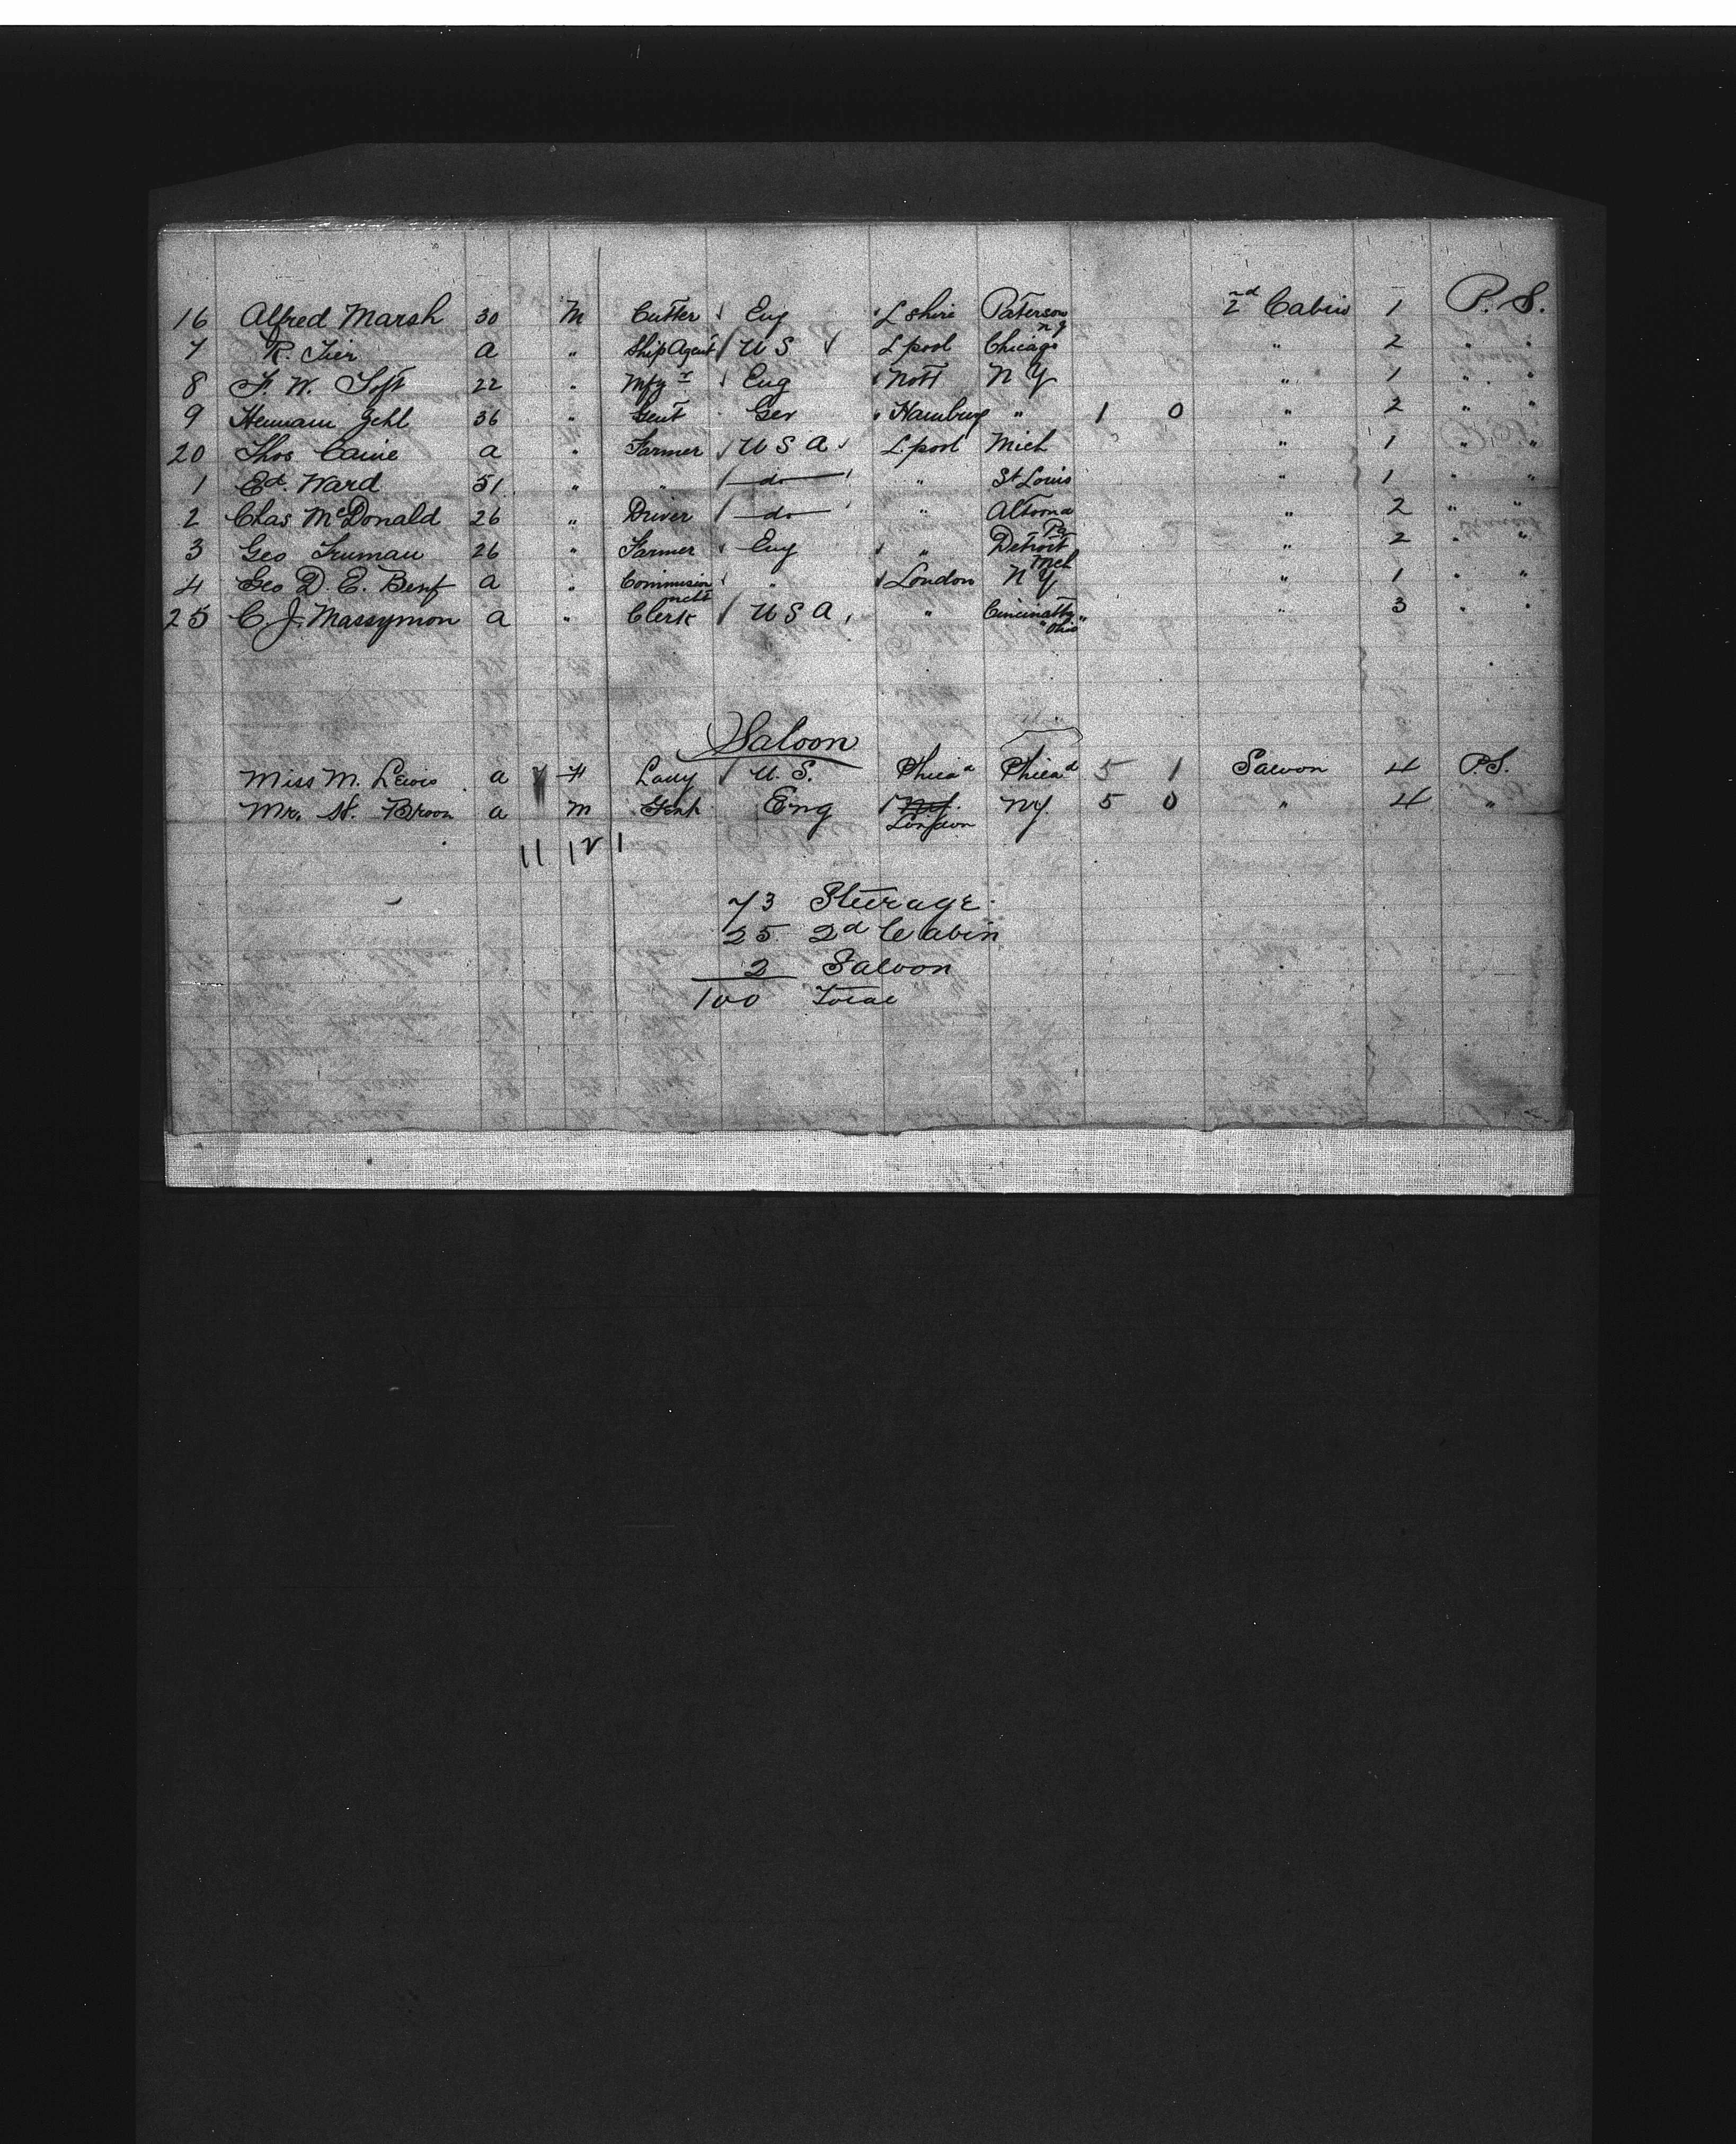 16 Alfred Marsh 30 M Cutter Eng L shire Paterson NJ 2nd Cabin 1 P. S.
7 R. Tier a " Ship Agent U S L pool Chicago " 2 " "
8 F. W. Toft 22 " Mfgr Eng Nott N Y " 1 " "
9 Hermann Gehl 36 " Gent Ger Hamburg " 1 0 " 2 " "
20 Thos Caine a " Farmer U S A L. pool Mich " 1 " "
1 Ed. Ward 51 " " do " St Louis " 1 " "
2 Chas McDonald 26 " Driver do " Altoona Pa " 2 " "
3 Geo Truman 26 " Farmer Eng " Detroit Mch " 2 " "
4 Geo D. E. a " Commission London N Y " 1 " "
25 C. J. Massymon a " Clerk U S A " Cincinatty Ohio " 3 " "
Saloon
Miss M. Lewis a F Lady U. S. Philad 5 1 Saloon 4 P.S.
Mr. H. Broon a M Gent Eng London NY. 5 0 " 4 "
11 121
73 Steerage
25 2d Cabin
2 Saloon
100 Total